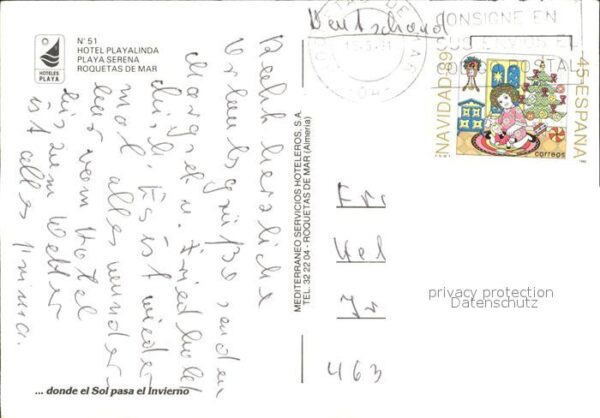 Nº 51
HOTEL PLAYALINDA
PLAYA SERENA
ROQUETAS DE MAR
HOTELES
PLAYA
Recht herzliche
Urlaubsgrüße senden
Margret u. Friedhelm
Es ist wieder
mal alles wunder
bar vom Hotel
bis zum Wetter
ist alles prima.
... donde el Sol pasa el Invierno
MEDITERRANEO SERVICIOS HOTELEROS, S.A.
TEL. 32 22 04 - ROQUETAS DE MAR (Almería)
Deutschland
CONSIGNE EN
SUS ENVIOS EL
POSTAL
NAVIDAD·89
45·ESPAÑA
correos
Fr
463
privacy protection
Datenschutz